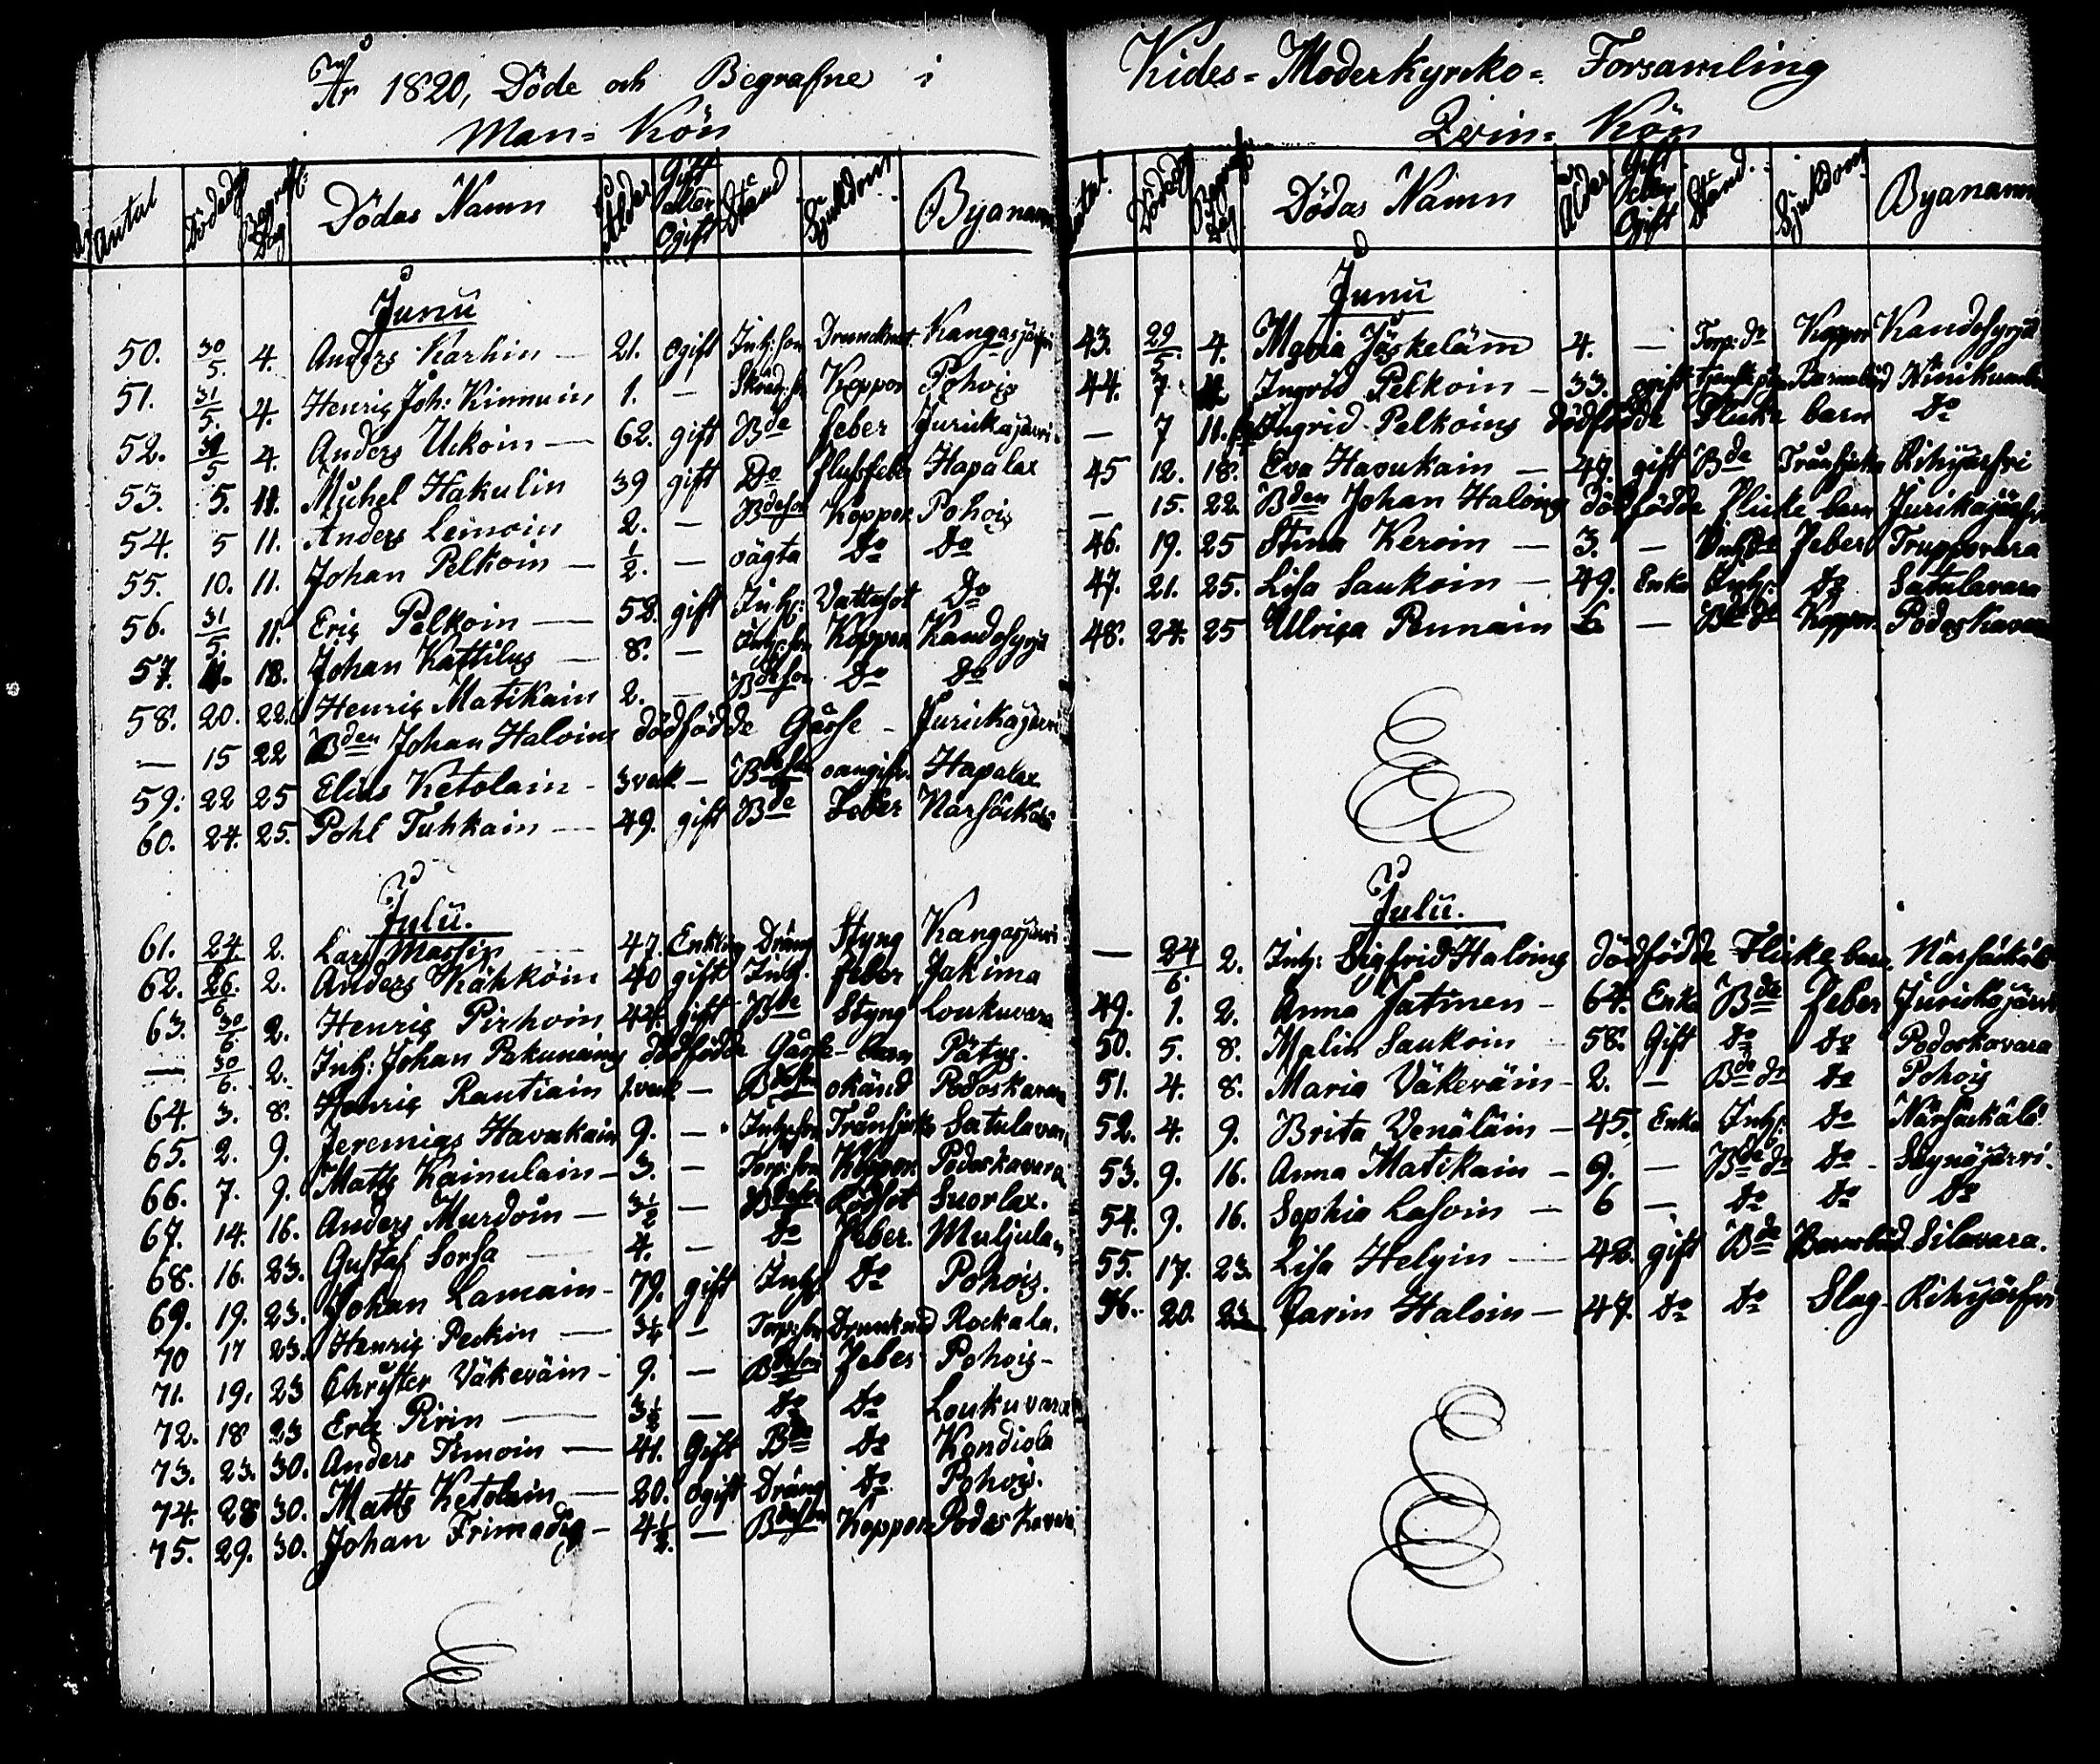 År 1820, Döde och Begrafne i
Man= Kön
Antal Dödedag Begrafn: Dag Dödas Namn Ålder Gift eller Ogift Stånd Sjukdom Byanamn
Junii
50. 30/5. 4. Anders Karhin — 21. Ogift Inh: son Drunknat Kangasjärfvi
51. 31/5. 4. Henric Joh: Kinnuin 1. — Koppor Pohois
52. 31/5 4. Anders Uckoin — 62. gift Bde feber Jurickajärvi
53. 5. 11. Mickel Hakulin 39 gift Do flussfeber Hapalax
54. 5 11. Anders Lemoin 2. — Bdeson Koppor Pohois
55. 10. 11. Johan Pelkoin — 1/2. — oägta Do Do
56. 31/5. 11. Eric Pelkoin — 58. gift Inhs: Vattusot Do
57. 18. Johan Kattilus — 8. — Inhs: son Koppor Kandosyrjä
58. 20. 22. Henric Matikain 2. — Bdeson Do Do
— 15 22 Bden Johan Haloins dödfödde Gåsse - Jurickajärvi
59. 22 25 Elias Ketolain - 3 veck — Bdeson oangifv. Hapalax
60. 24. 25. Pohl Tukkain — 49. gift Bde Feber Närsäckälä
Julii.
61. 24 2. Lars Massin — 47. Enkling Dräng Styng Kangasjärvi
62. 26/6. 2. Anders Kähköin 40 gift Inhs. feber Jakima
63. 30/6. 2. Henric Pirhoin 44. gift Bde Styng Loukuvara
— 30/6. 2. Inhs: Johan Pakunains dödfödde Gåsse-barn Pätys.
64. 3. 8. Henric Rautiain 1. veck — Bdeson okänd Podoskavara
65. 2. 9. Jeremias Havukain 9. — Inhs: son Trånsjuka Satulavara
66. 7. 9. Matts Kainulain — 3. — Torp: son Koppor Podoskavara
67. 14. 16. Anders Murdoin — 3 1/2 — Bdeson Rödsot Suorlax.
68. 16. 23. Gustaf Sorsa — 4. — Do Feber. Muljula
69. 19. 23. Johan Lamain - 79. gift Inhs Do Pohois.
70 17 23. Henric Peckin — 3 1/4 — Torp: son Drunknad Rockala.
71. 19. 23 Christer Väkeväin - 9. — Bdeson Feber Pohois -
72. 18 23 Eric Pirin — 3 1/2 — Do Do Loukuvara
73. 23. 30. Anders Timoin — 41. Gift Bde Do Kondiola
74. 28 30. Matts Ketolain — 20. Ogift Dräng Do Pohois.
75. 29. 30. Johan Frimodig - 4 1/2. — Bdeson Koppor Podoskavara
Kides = Moderkyrcko = Församling
Qvin= Kön
Antal. Dödedag Begrafn: Dag Dödas Namn Ålder Gift eller Ogift Stånd. Sjukdom Byanamn
Junii
43. 29/5. 4. Maria Jäskeläin 4. — Torp: dr Koppor Kandosyrjä
44. 7. 11 Ingrid Pelkoin — 33. ogift Barnsbörd Niinikumbu
— 7 11. Ingrid Pelkoins dödfödde Flicke barn Do
45 12. 18. Eva Havukain — 47. gift Bde Trånsjuka Rihijärfvi
— 15. 22. Bden Johan Haloins dödfödde Flicke barn Jurikajärfvi
46. 19. 25 Stina Keroin — 3. — Feber Truppovara
47. 21. 25. Lisa Saukoin — 49. Enka Inhs: Do Satulavara
48. 24. 25 Ulrica Pennain 6 — Bde dr Koppor Podoskavara
Julii.
— 24/6. 2. Inhs: Sigfrid Haloins dödfödde Flicke barn. Närsäckälä
49. 1. 2. Anna Jatinen — 64. Enka Bde Feber Jurickajärvi
50. 5. 8. Malin Saukoin — 58. Gift Do Do Podoskavara
51. 4. 8. Maria Väkeväin — 2. — Bde dr Do Pohois
52. 4. 9. Brita Venäläin — 45. Enka Inhs: Do Närsäckälä
53. 9. 16. Anna Matikain — 9. — Bde dr Do - Säynäjärvi.
54. 9. 16. Sophia Lasoin — 6 — Do Do Do
55. 17. 23. Lisa Helgin — 42. gift Bde Barnsbörd Silavara.
56. 20. 23 Karin Haloin — 47. Do Do Slag Rihijärfvi